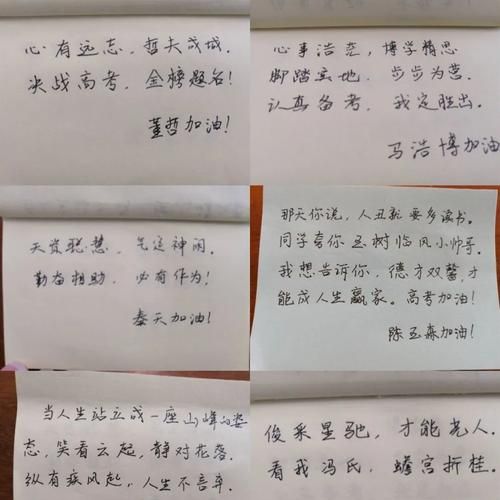 心有远志，哲夫成城。
决战高考，金榜题名！
董哲加油！
心事浩茫，博学精思
脚踏实地，步步为营。
认真备考，我定胜出。
马浩博加油
天资聪慧，气定神闲。
勤奋相助，必有作为！
秦天加油！
那天你说，人丑就要多读书。
同学夸你玉树临风小帅哥。
我想告诉你，德才双馨，才
能成人生赢家。高考加油！
陈玉森加油！
当人生站立成一座山峰的姿
态，笑看云起，静对花落。
纵有疾风起，人生不言弃。
俊采星驰，才能光人。
看我冯氏，蟾宫折桂。